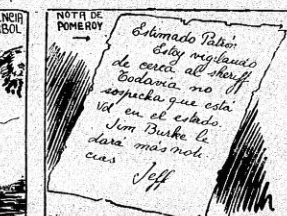 NOTA DE
POMEROY
Estimado Patrón
Estoy vigilando
de cerca al sheriff
Todavía no
sospecha que está
Vd en el estado.
Jim Burke le
dará más noti
cias
Jeff